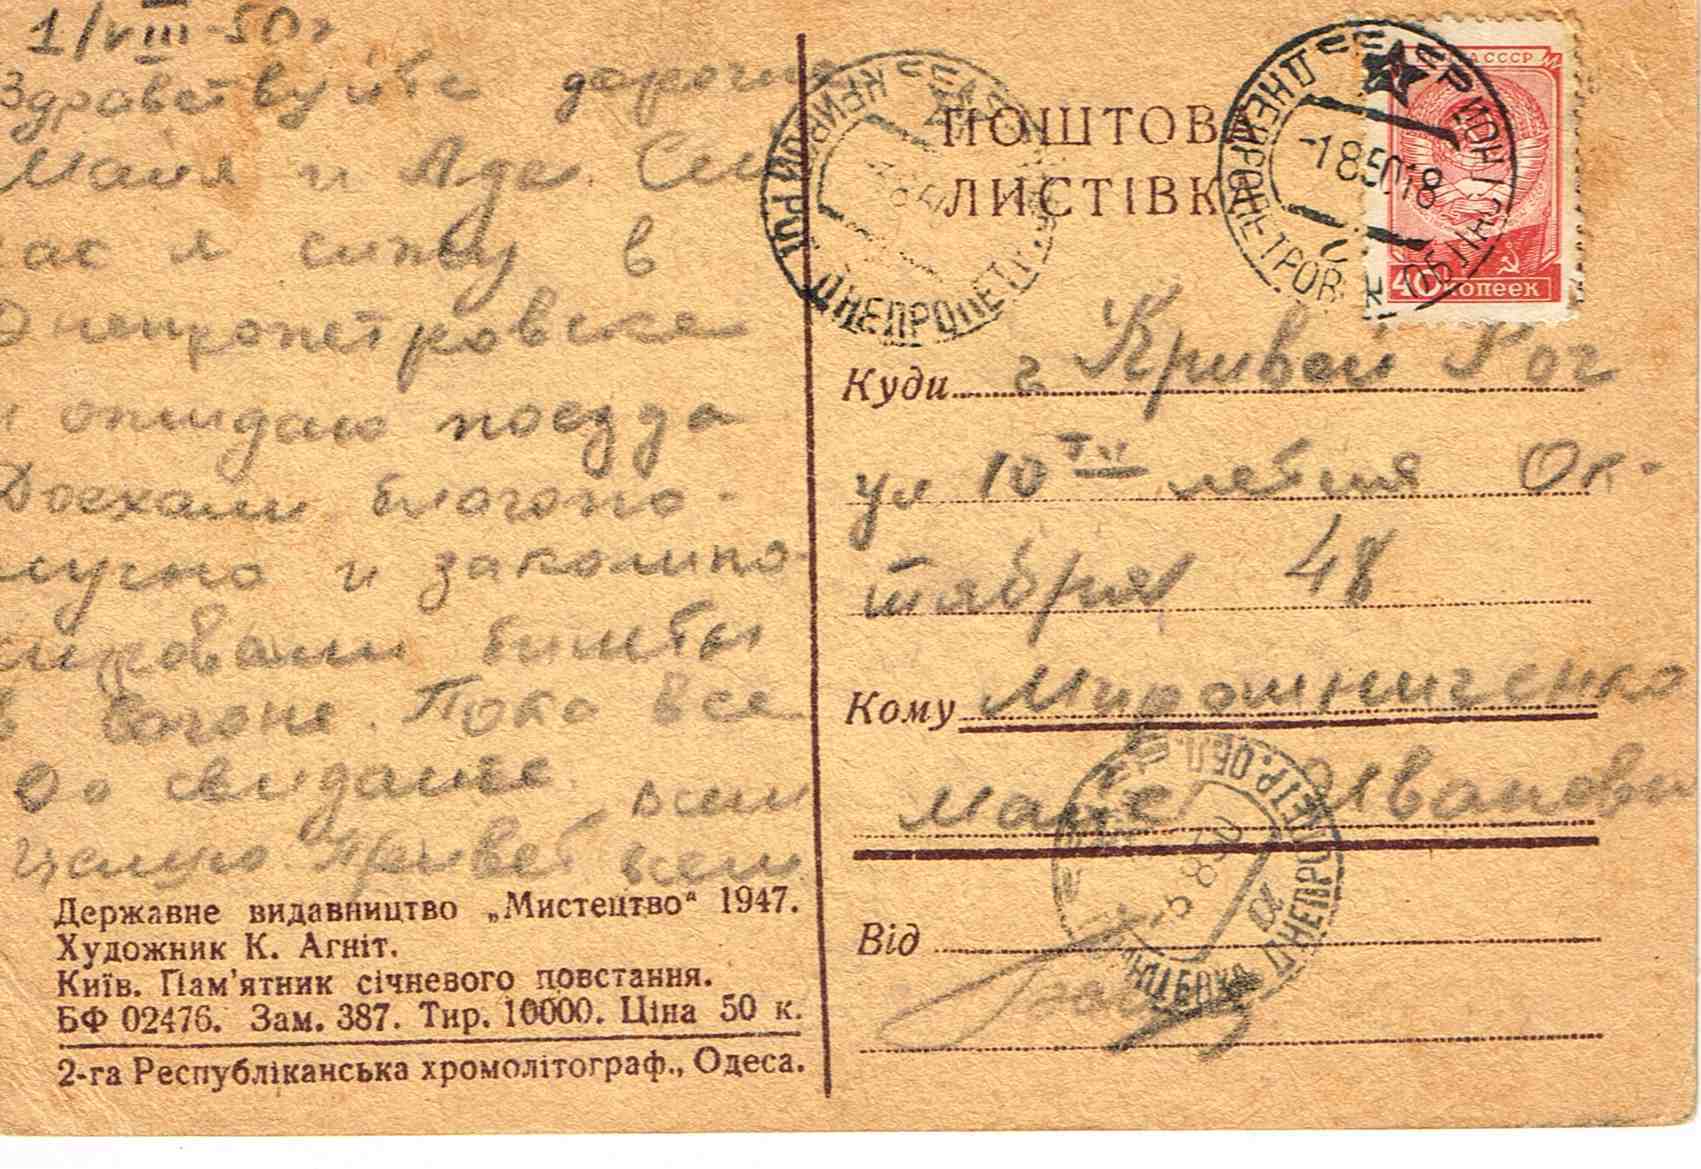 1/VIII-50г
Здравствуйте дорогие
Майя и Ада. Сей
час я сижу в
Днепропетровске
и ожидаю поезда
Доехали благопо-
лучно и закомпо-
сировали билеты
в вагоне. Пока все
До свидание.
всем
Целую Привет всем
Державне видавництво „Мистецтво“ 1947.
Художник К. Агніт.
Київ. Пам'ятник січневого повстання.
БФ 02476. Зам. 387. Тир. 10000. Ціна 50 к.
2-га Республіканська хромолітограф., Одеса.
ПОШТОВ
ЛИСТІВК
КРИВОЙ РОГ
ДНЕПРОПЕТР.
ДНЕПРОПЕТРОВСК ОБЛ
-185018
СССР
40 копеек
Куди г Кривой Рог
ул 10ти летия Ок-
тября 48
Кому Мирошниченко
Майе Ивановн
-5850
ДНЕПРОПЕТР.ОБЛ.
Від